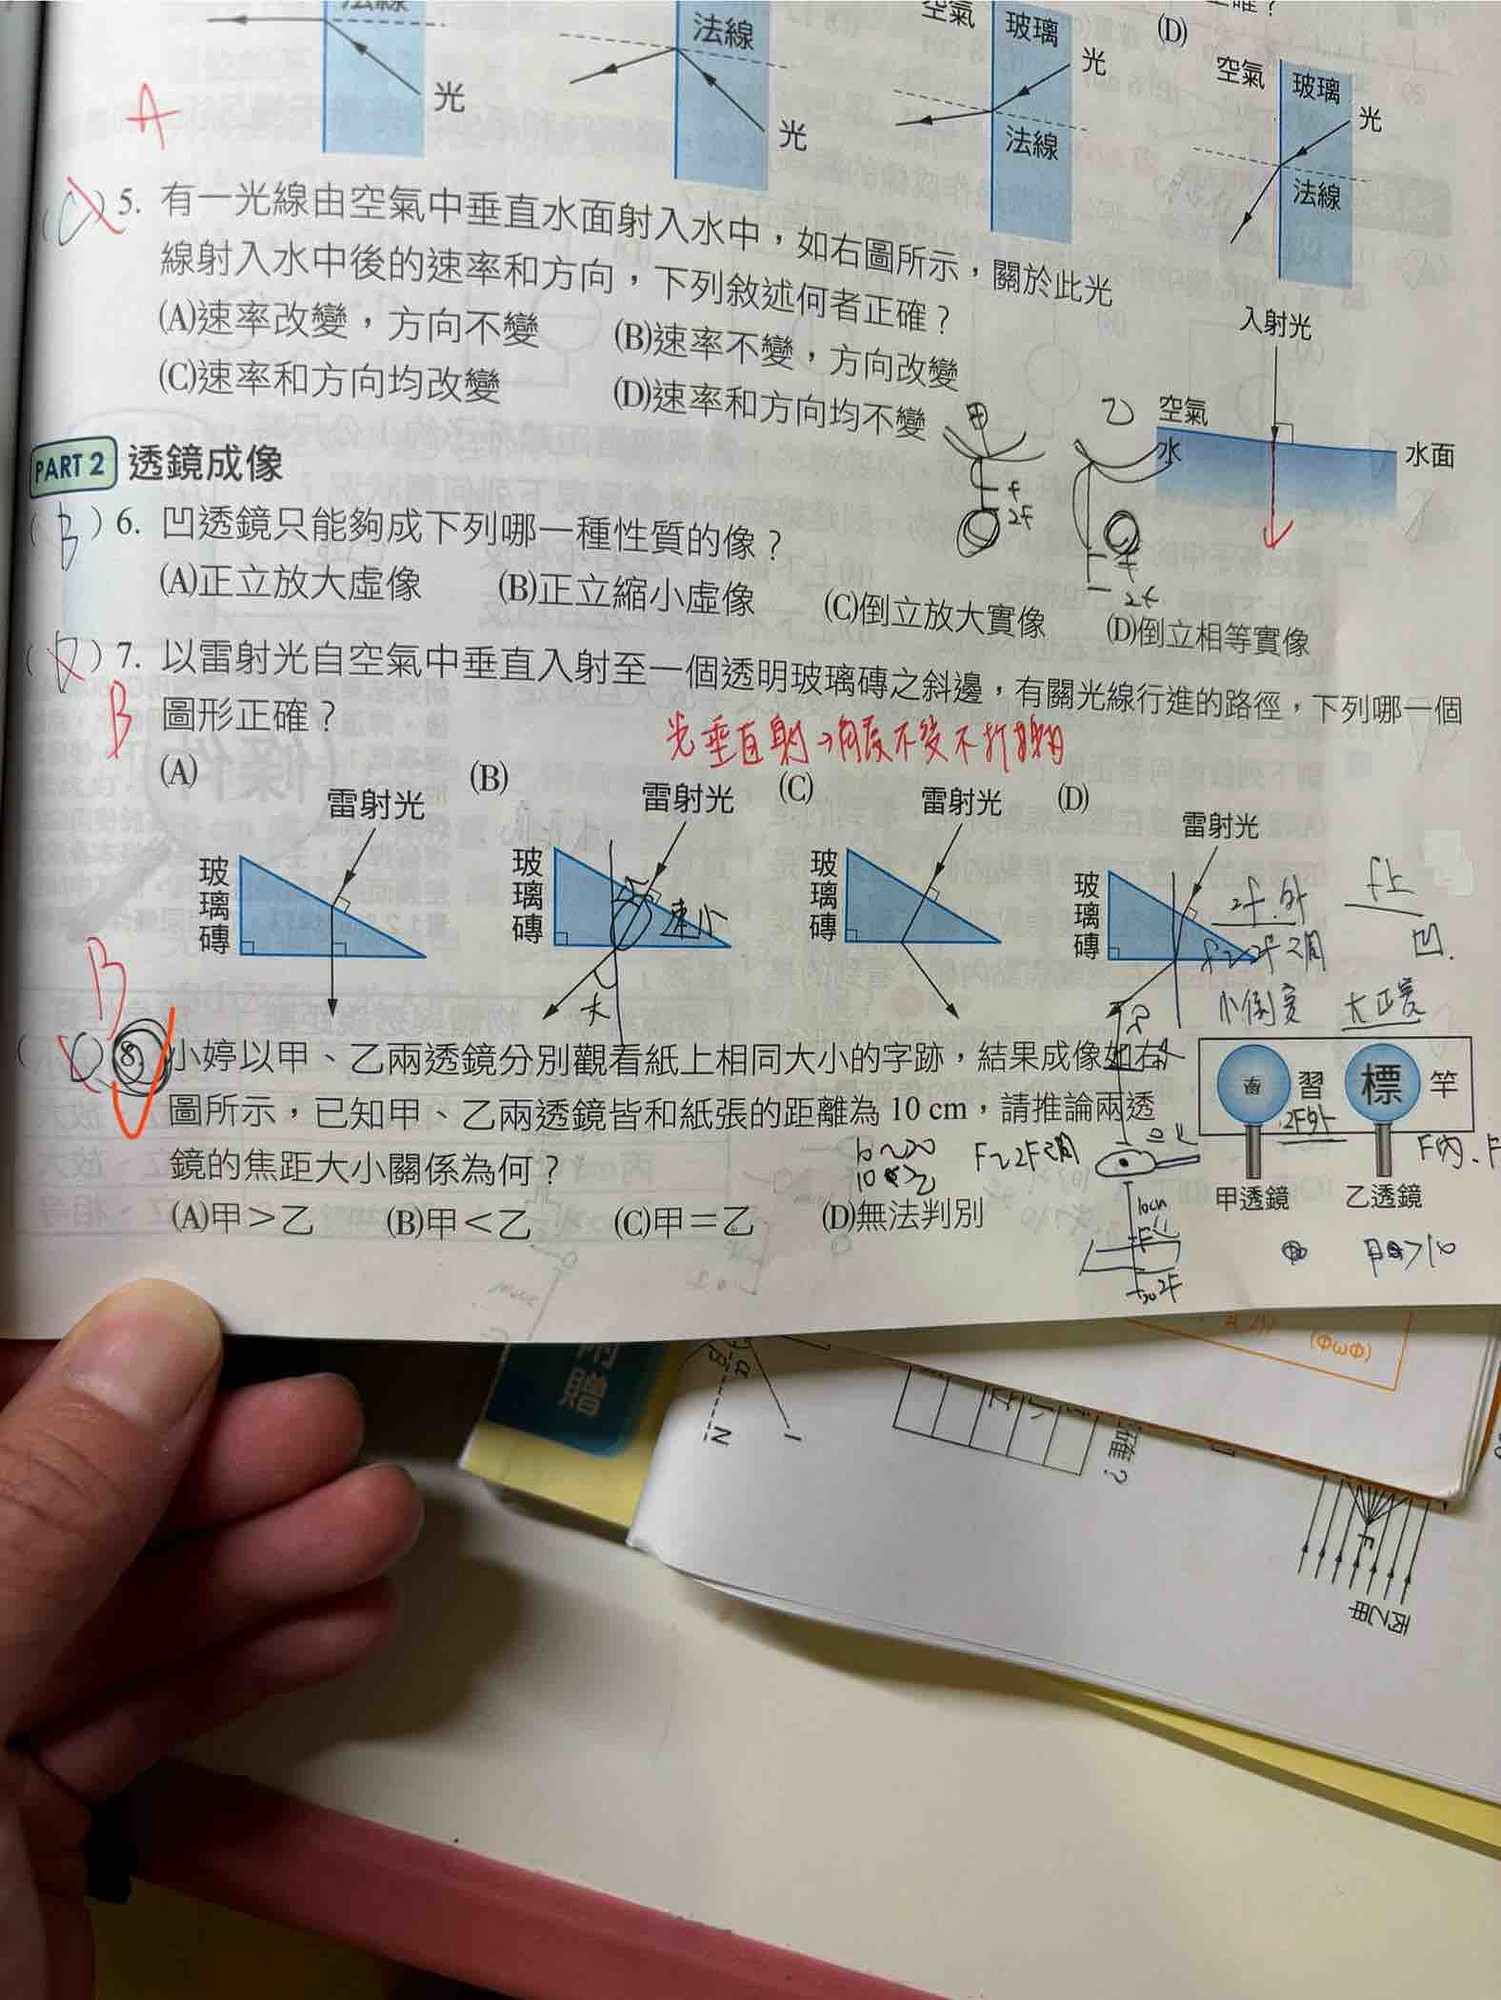 法線
光
法線
光
空氣
玻璃
光
法線
(D)
空氣
玻璃
光
法線
A
5. 有一光線由空氣中垂直水面射入水中，如右圖所示，關於此光
線射入水中後的速率和方向，下列敘述何者正確？
(A)速率改變，方向不變 (B)速率不變，方向改變
(C)速率和方向均改變 (D)速率和方向均不變
入射光
空氣
水
水面
甲
f
2F
乙
f
2f
PART 2 透鏡成像
(B) 6. 凹透鏡只能夠成下列哪一種性質的像？
(A)正立放大虛像 (B)正立縮小虛像 (C)倒立放大實像 (D)倒立相等實像
7. 以雷射光自空氣中垂直入射至一個透明玻璃磚之斜邊，有關光線行進的路徑，下列哪一個
圖形正確？
B
光垂直射→角度不變不打
(A) (B) (C) (D)
雷射光
玻璃磚
雷射光
玻璃磚
速小
大
雷射光
玻璃磚
雷射光
玻璃磚
2f外
f上
f~2f之間
凹.
小倒實
大正實
B
8. 小婷以甲、乙兩透鏡分別觀看紙上相同大小的字跡，結果成像如右
圖所示，已知甲、乙兩透鏡皆和紙張的距離為 10 cm，請推論兩透
鏡的焦距大小關係為何？
(A)甲＞乙 (B)甲＜乙 (C)甲＝乙 (D)無法判別
習
標
竿
2F外
甲透鏡
乙透鏡
F~2F之間
F內
10cm
2F
贈
N
確？
F
甲乙丙
(ΦωΦ)